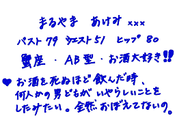 まるやま あけみ xxx
バスト79 ウエスト51 ヒップ80
蟹座・AB型・お酒大好き!!
♥お酒を死ぬほど飲んだ時、
何人かの男どもがいやらしいことを
したみたい。全然おぼえてないの。